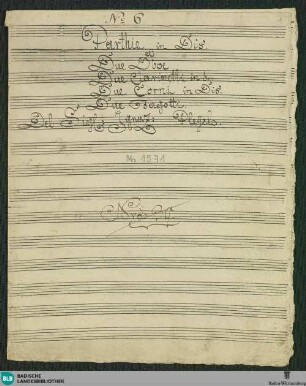 No. 6
Parthia in Dis
Due Oboe
Due Clarinetti in b
Due Corni in Dis
Due Fagotti
Del Sigl: Ignazi Pleyel
Ms 1571
Nro
BLB BADISCHE
LANDESBIBLIOTHEK
Baden-Württemberg